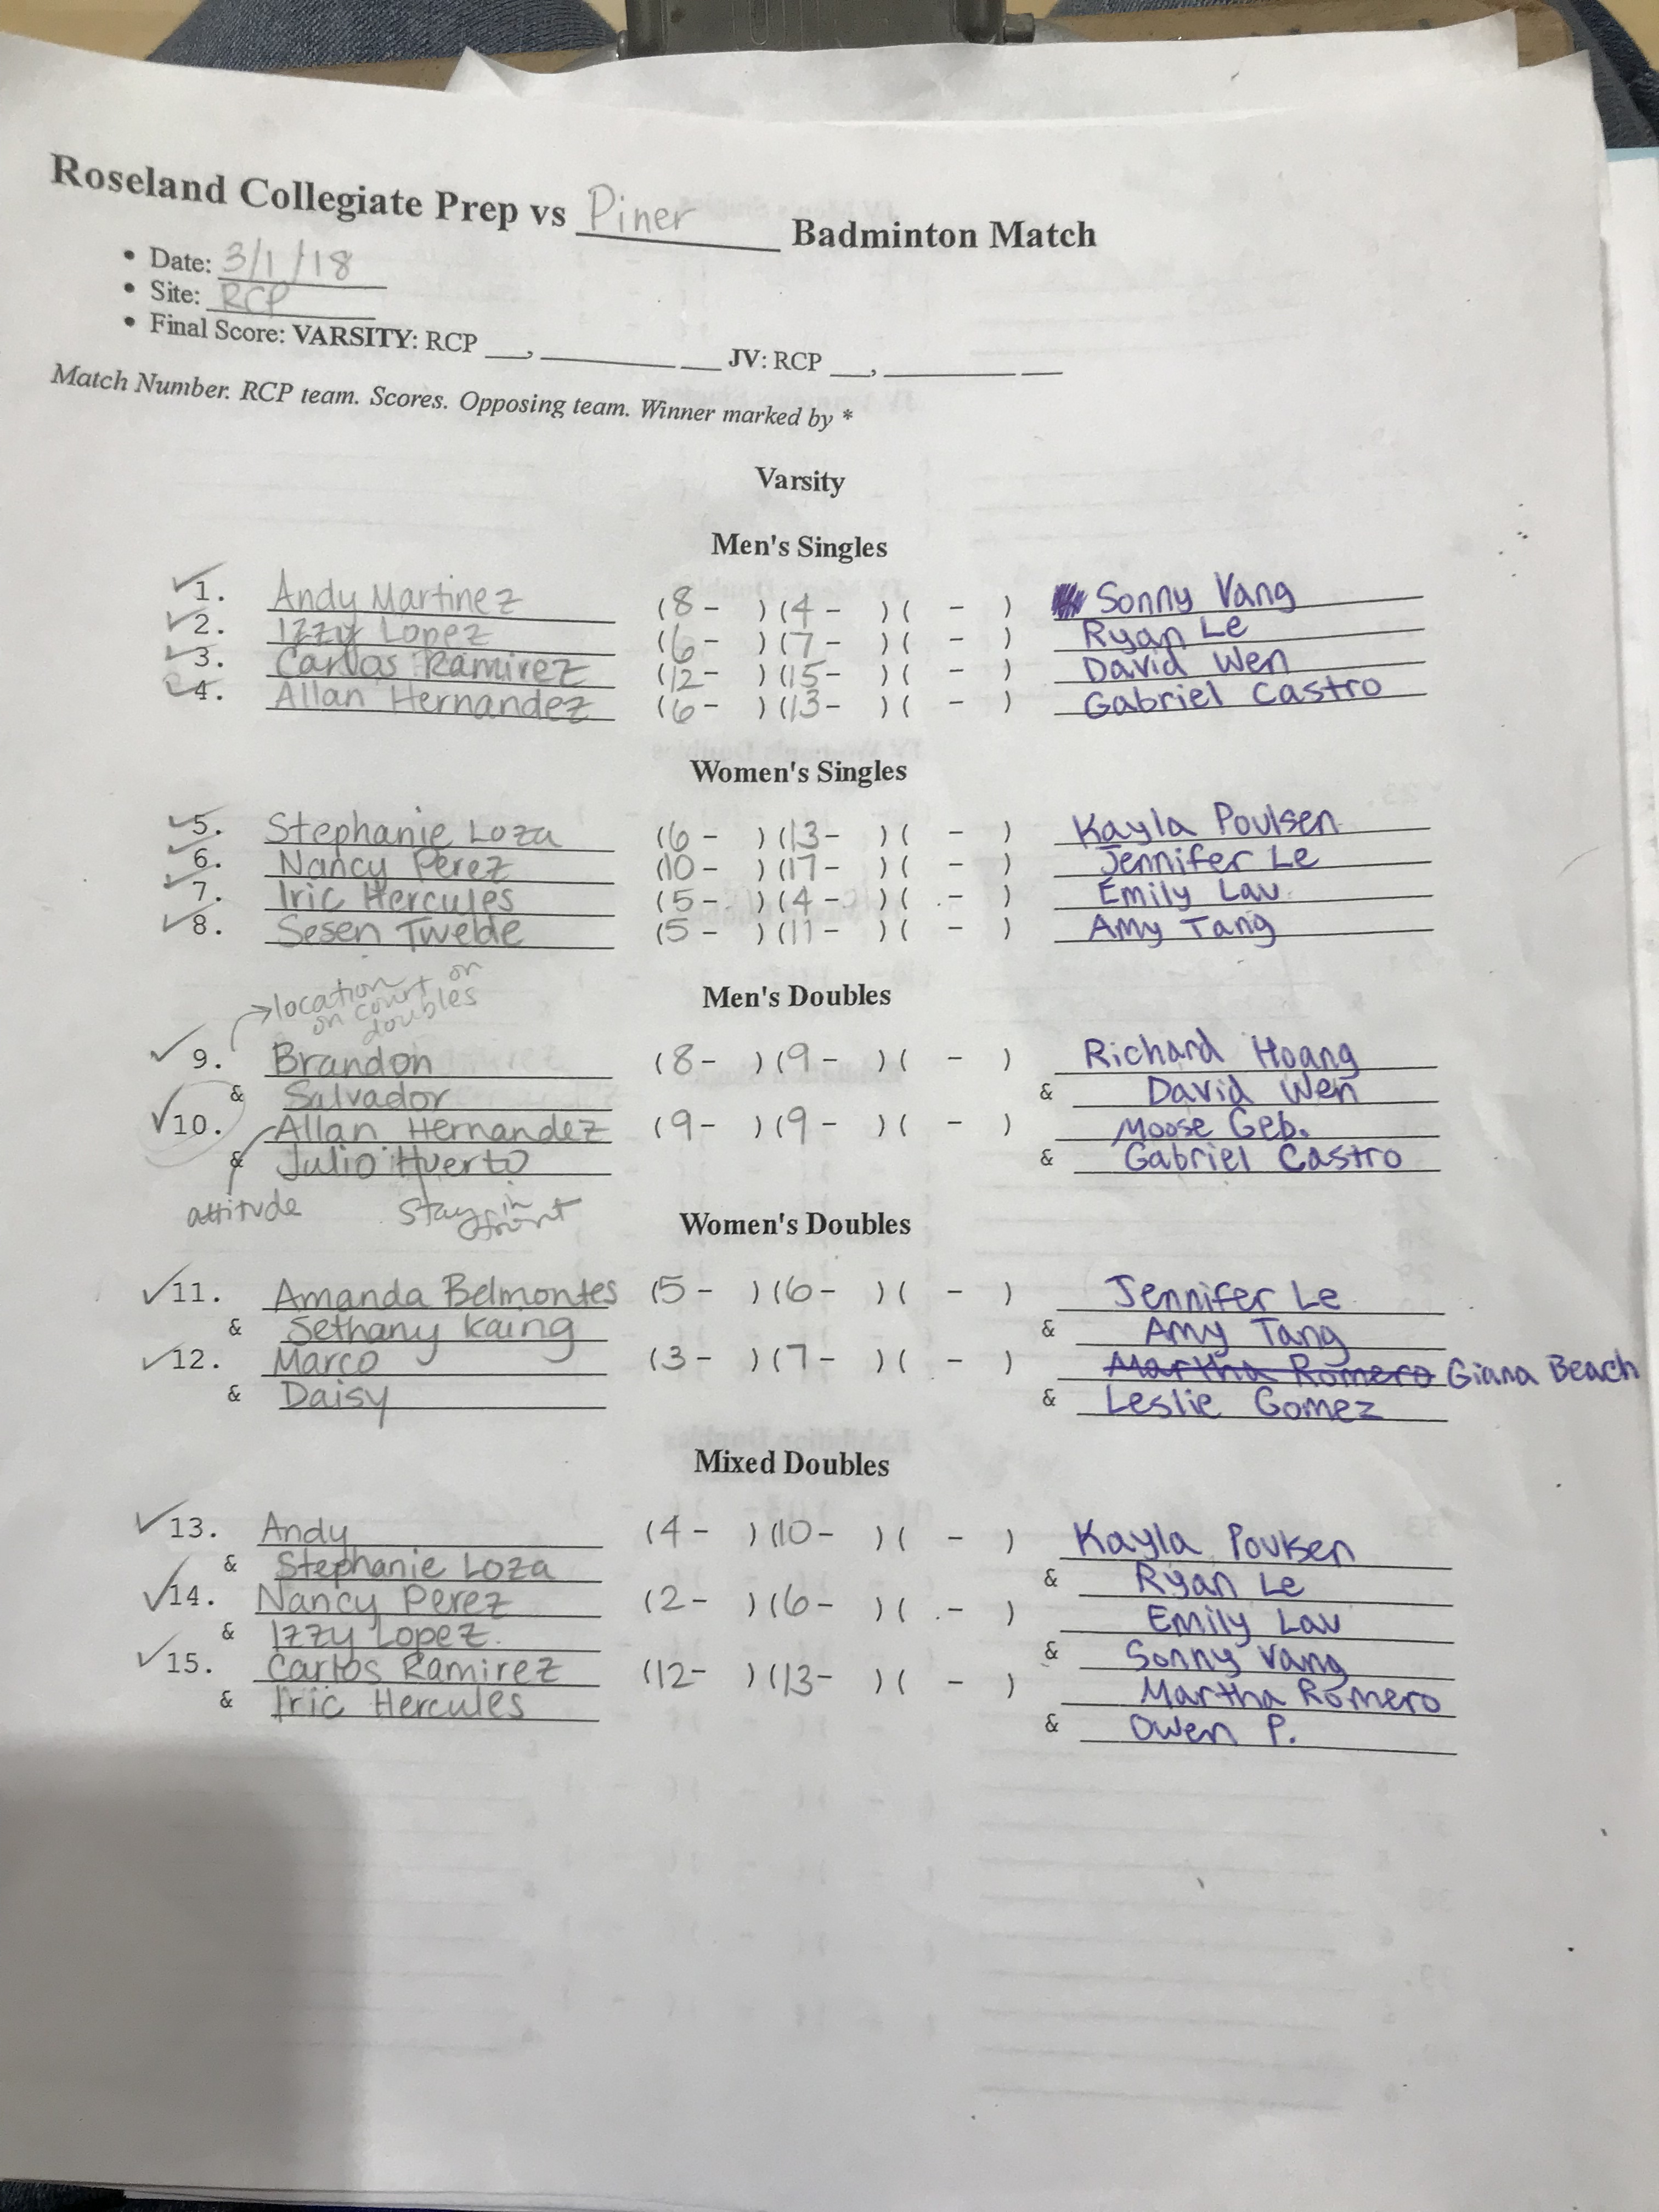 Roseland Collegiate Prep vs Piner Badminton Match
• Date: 3/1/18
• Site: RCP
• Final Score: VARSITY: RCP ___, ________ ___ JV: RCP ___, ________ ___
Match Number. RCP team. Scores. Opposing team. Winner marked by *
Varsity
Men's Singles
✓1. Andy Martinez (8 - ) (4 - ) ( - ) Sonny Vang
✓2. Izzy Lopez (6 - ) (7 - ) ( - ) Ryan Le
✓3. Carlos Ramirez (12 - ) (15 - ) ( - ) David Wen
✓4. Allan Hernandez (6 - ) (13 - ) ( - ) Gabriel Castro
Women's Singles
✓5. Stephanie Loza (6 - ) (13 - ) ( - ) Kayla Poulsen
✓6. Nancy Perez (10 - ) (17 - ) ( - ) Jennifer Le
✓7. Iric Hercules (5 - ) (4 - ) ( - ) Emily Lau
✓8. Sesen Twelde (5 - ) (11 - ) ( - ) Amy Tang
→location on
on court
doubles
Men's Doubles
✓9. Brandon (8 - ) (9 - ) ( - ) Richard Hoang
& Salvador & David Wen
✓10. Allan Hernandez (9 - ) (9 - ) ( - ) Moose Geb.
& Julio Huerto & Gabriel Castro
attitude stay in front
Women's Doubles
✓11. Amanda Belmontes (5 - ) (6 - ) ( - ) Jennifer Le
& Sethany Kaing & Amy Tang
✓12. Marco (3 - ) (7 - ) ( - ) Martha Romero Giana Beach
& Daisy & Leslie Gomez
Mixed Doubles
✓13. Andy (4 - ) (10 - ) ( - ) Kayla Poulsen
& Stephanie Loza & Ryan Le
✓14. Nancy Perez (2 - ) (6 - ) ( - ) Emily Lau
& Izzy Lopez & Sonny Vang
✓15. Carlos Ramirez (12 - ) (13 - ) ( - ) Martha Romero
& Iric Hercules & Owen P.